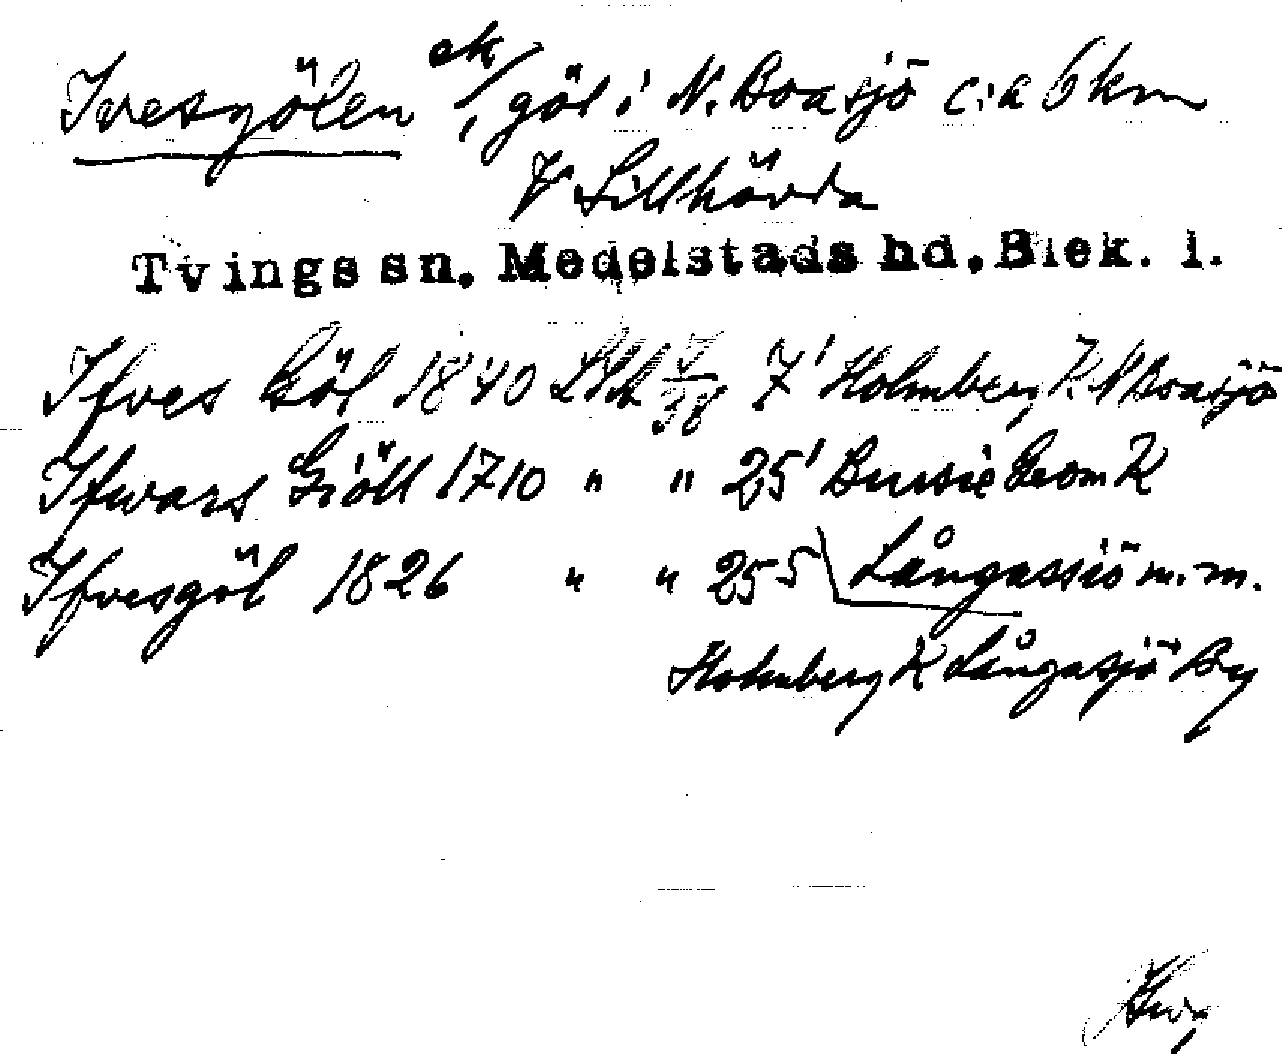 Ivesgölen ek/, göl i N. Boasjö c:a 6 km
V Tillhövda
Tvings sn, Medelstads hd, Blek. l.
Ifves Göl 1840 7' Holmberg K N Boasjö
Ifwars Giöll 1710 " " 25' Bursie Geom K
Ifvesgöl 1826 " " 255 Långassiö m.m.
Holmberg K Långasjö By